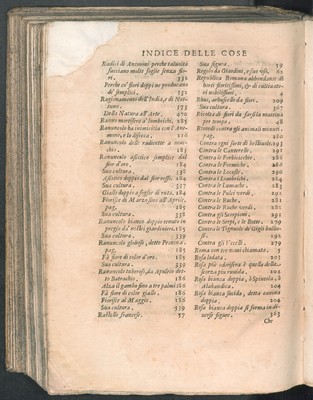 INDICE DELLE COSE
Radici di Anemini perche taluolta
facciano molte foglie senza fiori. 332
Perche co' fiori doppi ne producano
de' semplici. 152
Ragionamento dell'Indie, e di Nettuno. 375
Della Natura, & Arte. 470
Ranno mortifero a' lombrichi. 285
Ranuncolo ha inimicitia con l'Anemone, e la difesa.
Ranuncolo delle radicette a mucchi. 183
Ranuncolo asiatico semplice dal
fior d'oro. 184
Sua cultura. 338
Asiatico doppio dal fior rosso. 184
Sua cultura. 337
Giallo doppio a foglie di ruta. 184
Fiorisce di Marzo sin'all'Aprile.
pag. 185
Sua cultura. 338
Ranuncolo bianco doppio tenuto in
pregio da' nostri giardinieri. 185
Sua cultura. 339
Ranuncolo globoso, detto Pomma.
pag. 185
Fà fiore di color d'oro. 185
Sua cultura. 339
Ranuncolo tuberoso, da Apuleio detto Batrachio. 186
Alza il gambo sino a tre palmi 186
Fà fiore di color giallo. 186
Fiorisce al Maggio. 186
Sua cultura. 339
Rastello francese. 57
Sua figura. 59
Regole da Giardini, e sue visi, 62
Republica Romana abbondante di
horti fioritissimi, & di cultiuatori
nobilissimi. 4
Ribes, arbuscello da fiore. 209
Sua cultura. 367
Ricetta di fiori da farsi la mattina
per tempo. 48
Rimedi contro gli animali nimici
pag. 280
Contra ogni sorte di bestiuole. 291
Contra le Canterelle. 291
Contra le Forbicicchie. 286
Contra le Formiche. 286
Contra le Locuste. 290
Contra i Lombrichi. 284
Contra le Lumache. 283
Contra le Pulci verdi. 291
Contra le Ruche. 281
Contra le Ruche verdi. 281
Contra gli Scorpioni. 291
Contra le Serpi, e le Botte. 279
Contra le Tignuole de' Gigli bulbosi. 292
Contra gli Vccelli. 279
Roma con tre nomi chiamata. 5
Rosa lodata. 203
Rosa più odorifera è quella della
scorza più ruuida. 204
Rosa bianca doppia, ò Spineola, ò
Alabandica. 204
Rosa bianca siuida, detta canina
doppia. 204
Rosa bianca doppia si forma in diuerse figure. 363
Che